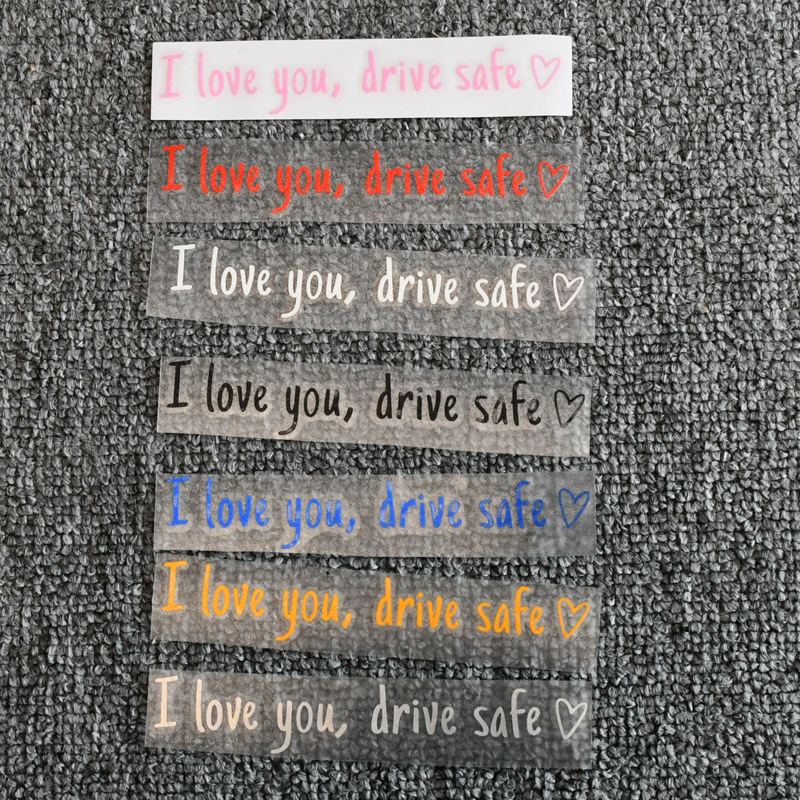 I love you, drive safe♡
I love you, drive safe♡
I love you, drive safe♡
I love you, drive safe♡
I love you, drive safe♡
I love you, drive safe♡
I love you, drive safe♡